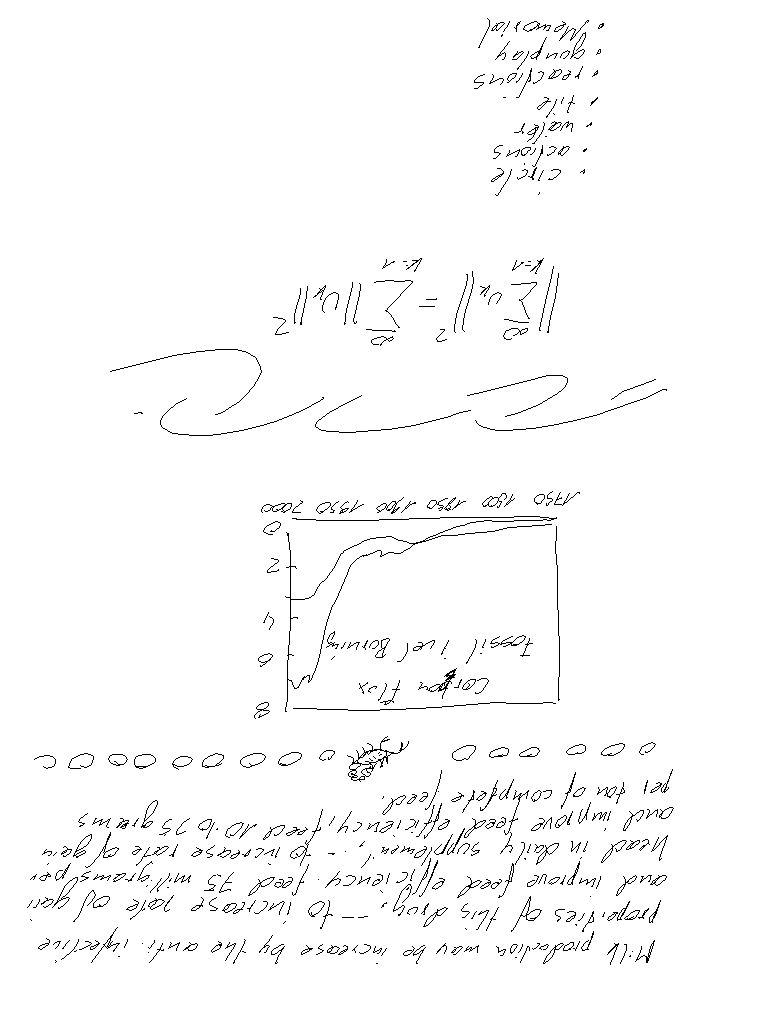 Milk production may be increase by the anti. infective
properties of this drug. -- to increase rate of gain
and improve feed efficiency. feed 75 milligrams per
head in daily supplement, -- to increase rate of gain
and improve feed efficiency, feed 10 to 75 grams
per ton of complete feed.
8
Carbon Flux
Fossil fuel Burning
6
4
2
0
1750 1800 1850 1900 1950 2000
||∑_{k=1}^{∞} υ_k||² = ∑_{k=1}^{∞} ||υ_k||²
• circle
• actions
• water
• tile
• reactions
• gunplay
• Memorial